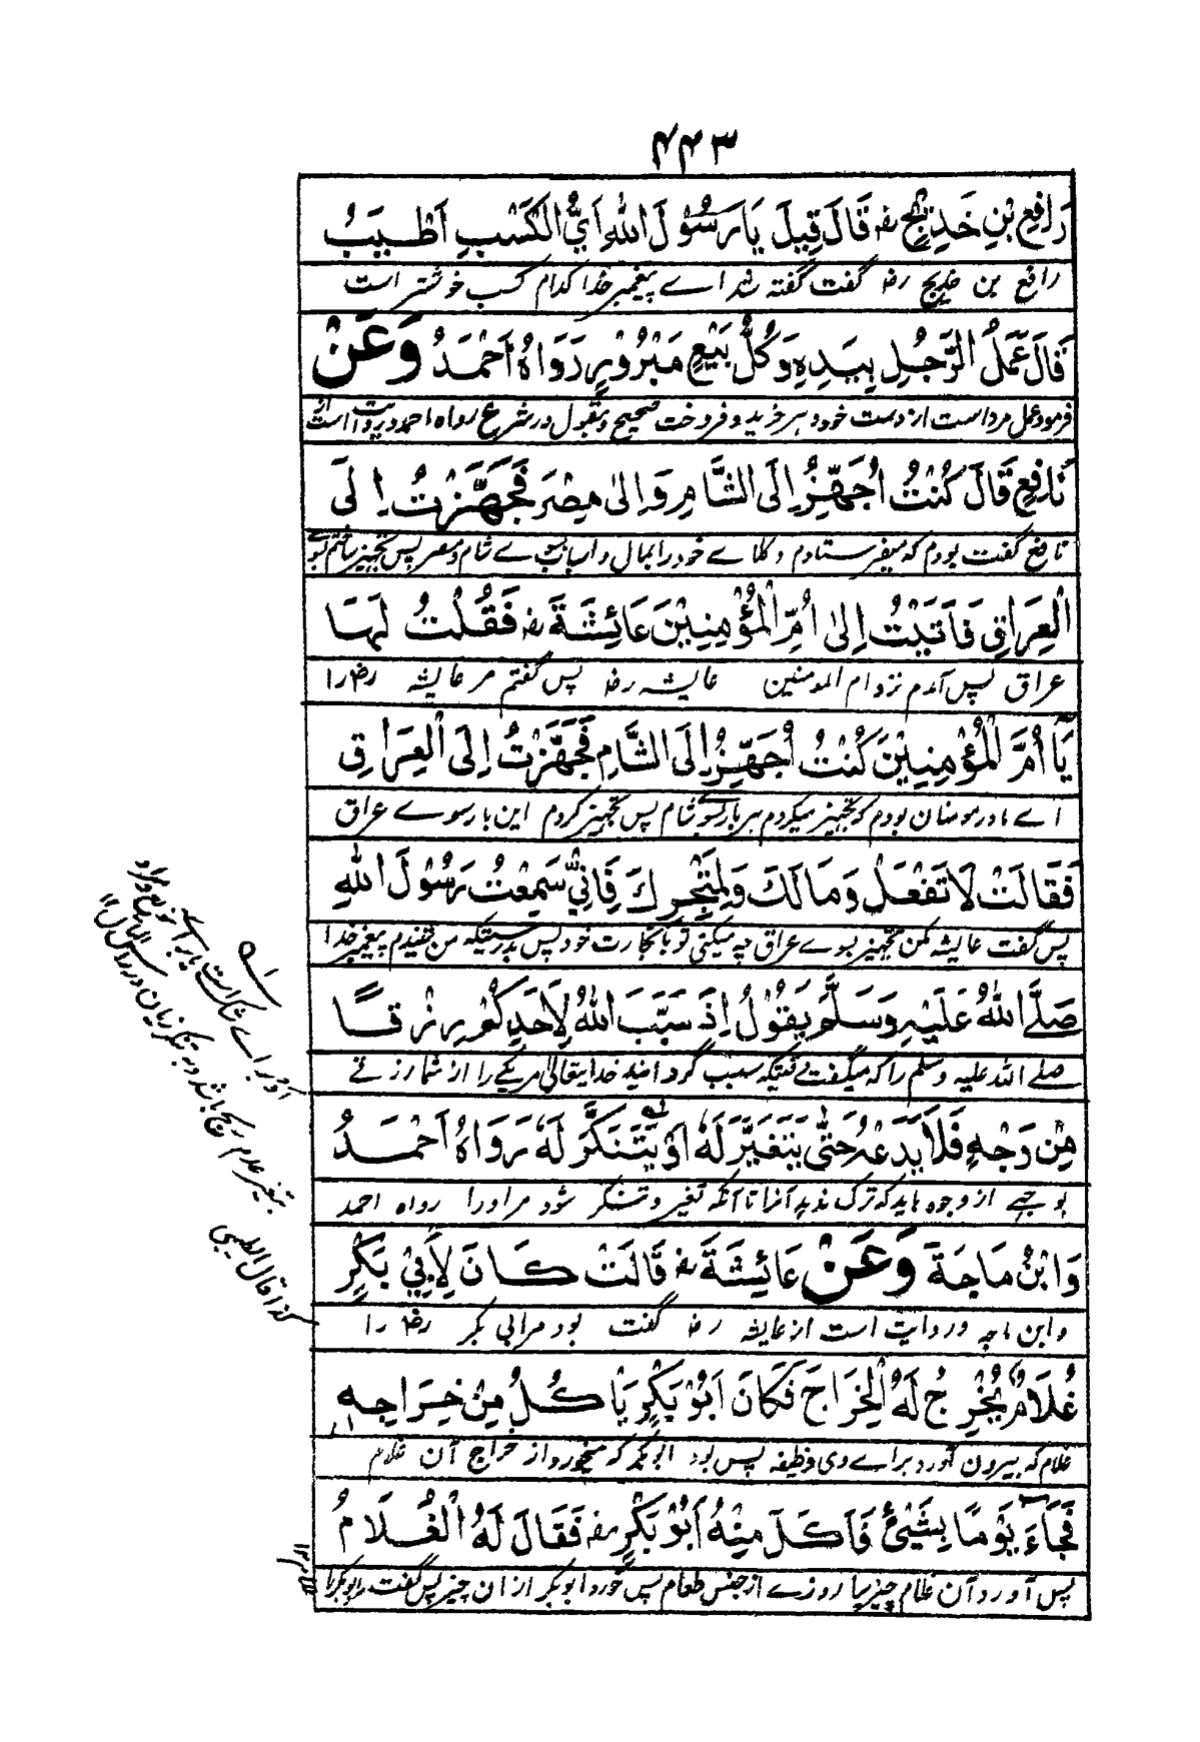 ۴۴۳
رَافِعِ بْنِ خَدِيْجٍ رضـ قَالَ قِيْلَ يَا رَسُوْلَ اللهِ اَيُّ الْكَسْبِ اَطْيَبُ
رافع بن خدیج رضـ گفت گفته شد اے پیغمبر خدا کدام کسب خوشتر است
قَالَ عَمَلُ الرَّجُلِ بِيَدِهِ وَكُلُّ بَيْعٍ مَبْرُوْرٍ رَوَاهُ اَحْمَدُ وَعَنْ
فرمود عمل مرد است از دست خود و هر خرید و فروخت صحیح و مقبول در شرع رواه احمد و روایت است از
نَافِعٍ قَالَ كُنْتُ اُجَهِّزُ اِلَى الشَّامِ وَاِلىٰ مِصْرَ فَجَهَّزْتُ اِلَى
نافع گفت بودم که میفرستادم وکلاے خود را بمال و اسباب بسوے شام و مصر پس تجهیز ساختم بسوے
الْعِرَاقِ فَاَتَيْتُ اِلىٰ اُمِّ الْمُؤْمِنِيْنَ عَائِشَةَ رضـ فَقُلْتُ لَهَا
عراق پس آمدم نزد ام المومنین عایشه رضـ پس گفتم مر عایشه رضـ را
يَا اُمَّ الْمُؤْمِنِيْنَ كُنْتُ اُجَهِّزُ اِلَى الشَّامِ فَجَهَّزْتُ اِلَى الْعِرَاقِ
اے مادر مومنان بودم که تجهیز میکردم هر بار بسوے شام پس تجهیز کردم این بار سوے عراق
فَقَالَتْ لَا تَفْعَلْ وَمَا لَكَ وَلِمَتْجَرِكَ فَاِنِّيْ سَمِعْتُ رَسُوْلَ اللهِ
پس گفت عایشه مکن تجهیز بسوے عراق چه میکنی تو با تجارت خود پس بدرستیکه من شنیدم پیغمبر خدا
صَلَّى اللهُ عَلَيْهِ وَسَلَّمَ يَقُوْلُ اِذَ سَبَّبَ اللهُ لِاَحَدِكُمْ رِزْقًا
صلے الله علیه وسلم را که میگفت وقتیکه سبب گرداند خدایتعالیٰ مر یکے را از شما رزقے
مِنْ وَجْهٍ فَلَا يَدَعْهُ حَتّٰى يَتَغَيَّرَ لَهُ اَوْ يَتَنَكَّرَ لَهُ رَوَاهُ اَحْمَدُ
بوجهے از وجوه باید که ترک ندهد آنرا تا آنکه تغیر و تنکر شود مر او را رواه احمد
وَابْنُ مَاجَةَ وَعَنْ عَائِشَةَ رضـ قَالَتْ كَانَ لِأَبِيْ بَكْرٍ
وابن ماجه و روایت است از عایشه رضـ گفت بود مرابی بکر رضـ را
غُلَامٌ يُخْرِجُ لَهُ الْخَرَاجَ فَكَانَ اَبُوْ بَكْرٍ يَاْكُلُ مِنْ خَرَاجِهِ
غلام که بیرون آورد براے وی وظیفه پس بود ابوبکر که میخورد از خراج آن غلام
فَجَاءَ يَوْمًا بِشَيْئٍ فَاَكَلَ مِنْهُ اَبُوْ بَكْرٍ رضـ فَقَالَ لَهُ الْغُلَامُ
پس آورد آن غلام چیزیرا روزے از جنس طعام پس خورد ابوبکر از ان چیز پس گفت ابوبکر را
کذا قال الطیبی